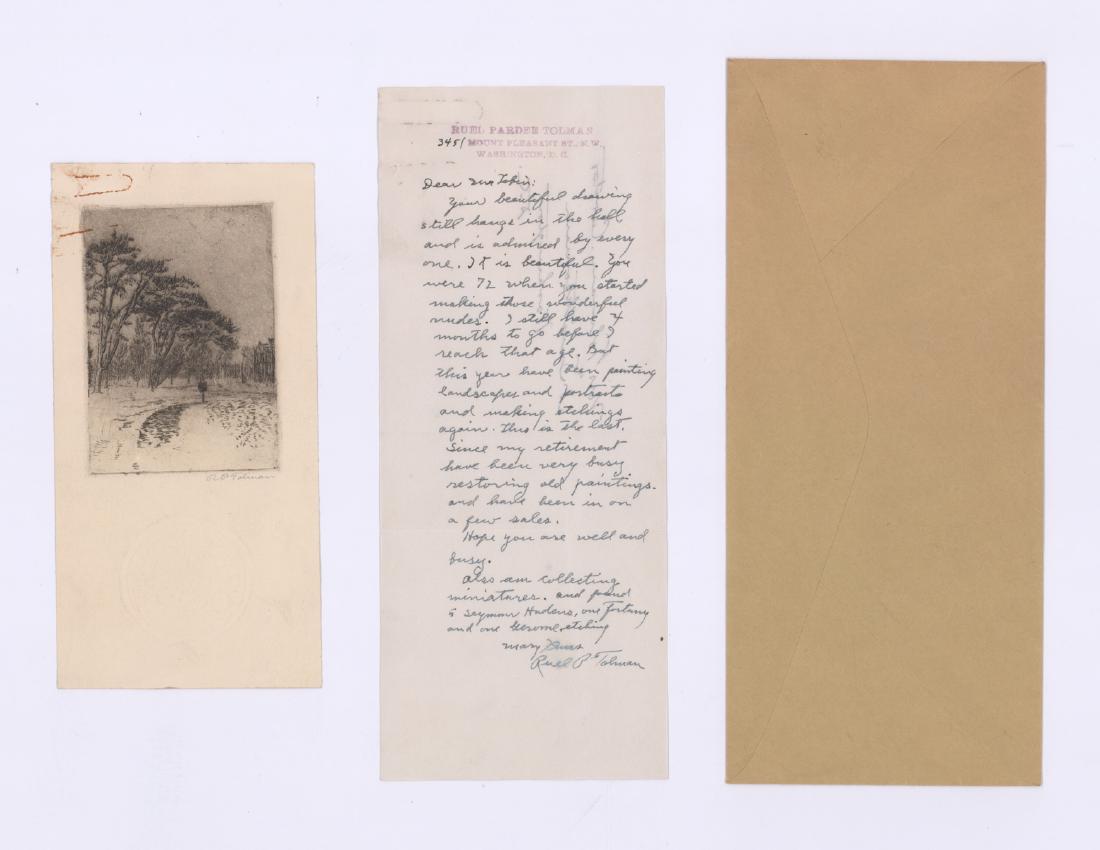 R P Tolman
RUEL PARDEE TOLMAN
3451 MOUNT PLEASANT ST., N.W.,
WASHINGTON, D. C.
Dear Mr Tobin:
Your beautiful drawing
still hangs in the hall
and is admired by every
one. It is beautiful. You
were 72 when you started
making those wonderful
nudes. I still have 4
months to go before I
reach that age. But
this year have been painting
landscapes and portraits
and making etchings
again. This is the last.
Since my retirement
have been very busy
restoring old paintings.
and have been in on
a few sales.
Hope you are well and
busy.
Also am collecting
miniatures. and found
5 Seymour Hadens, one Fortuny
and one Gerome etching
Ruel P Tolman